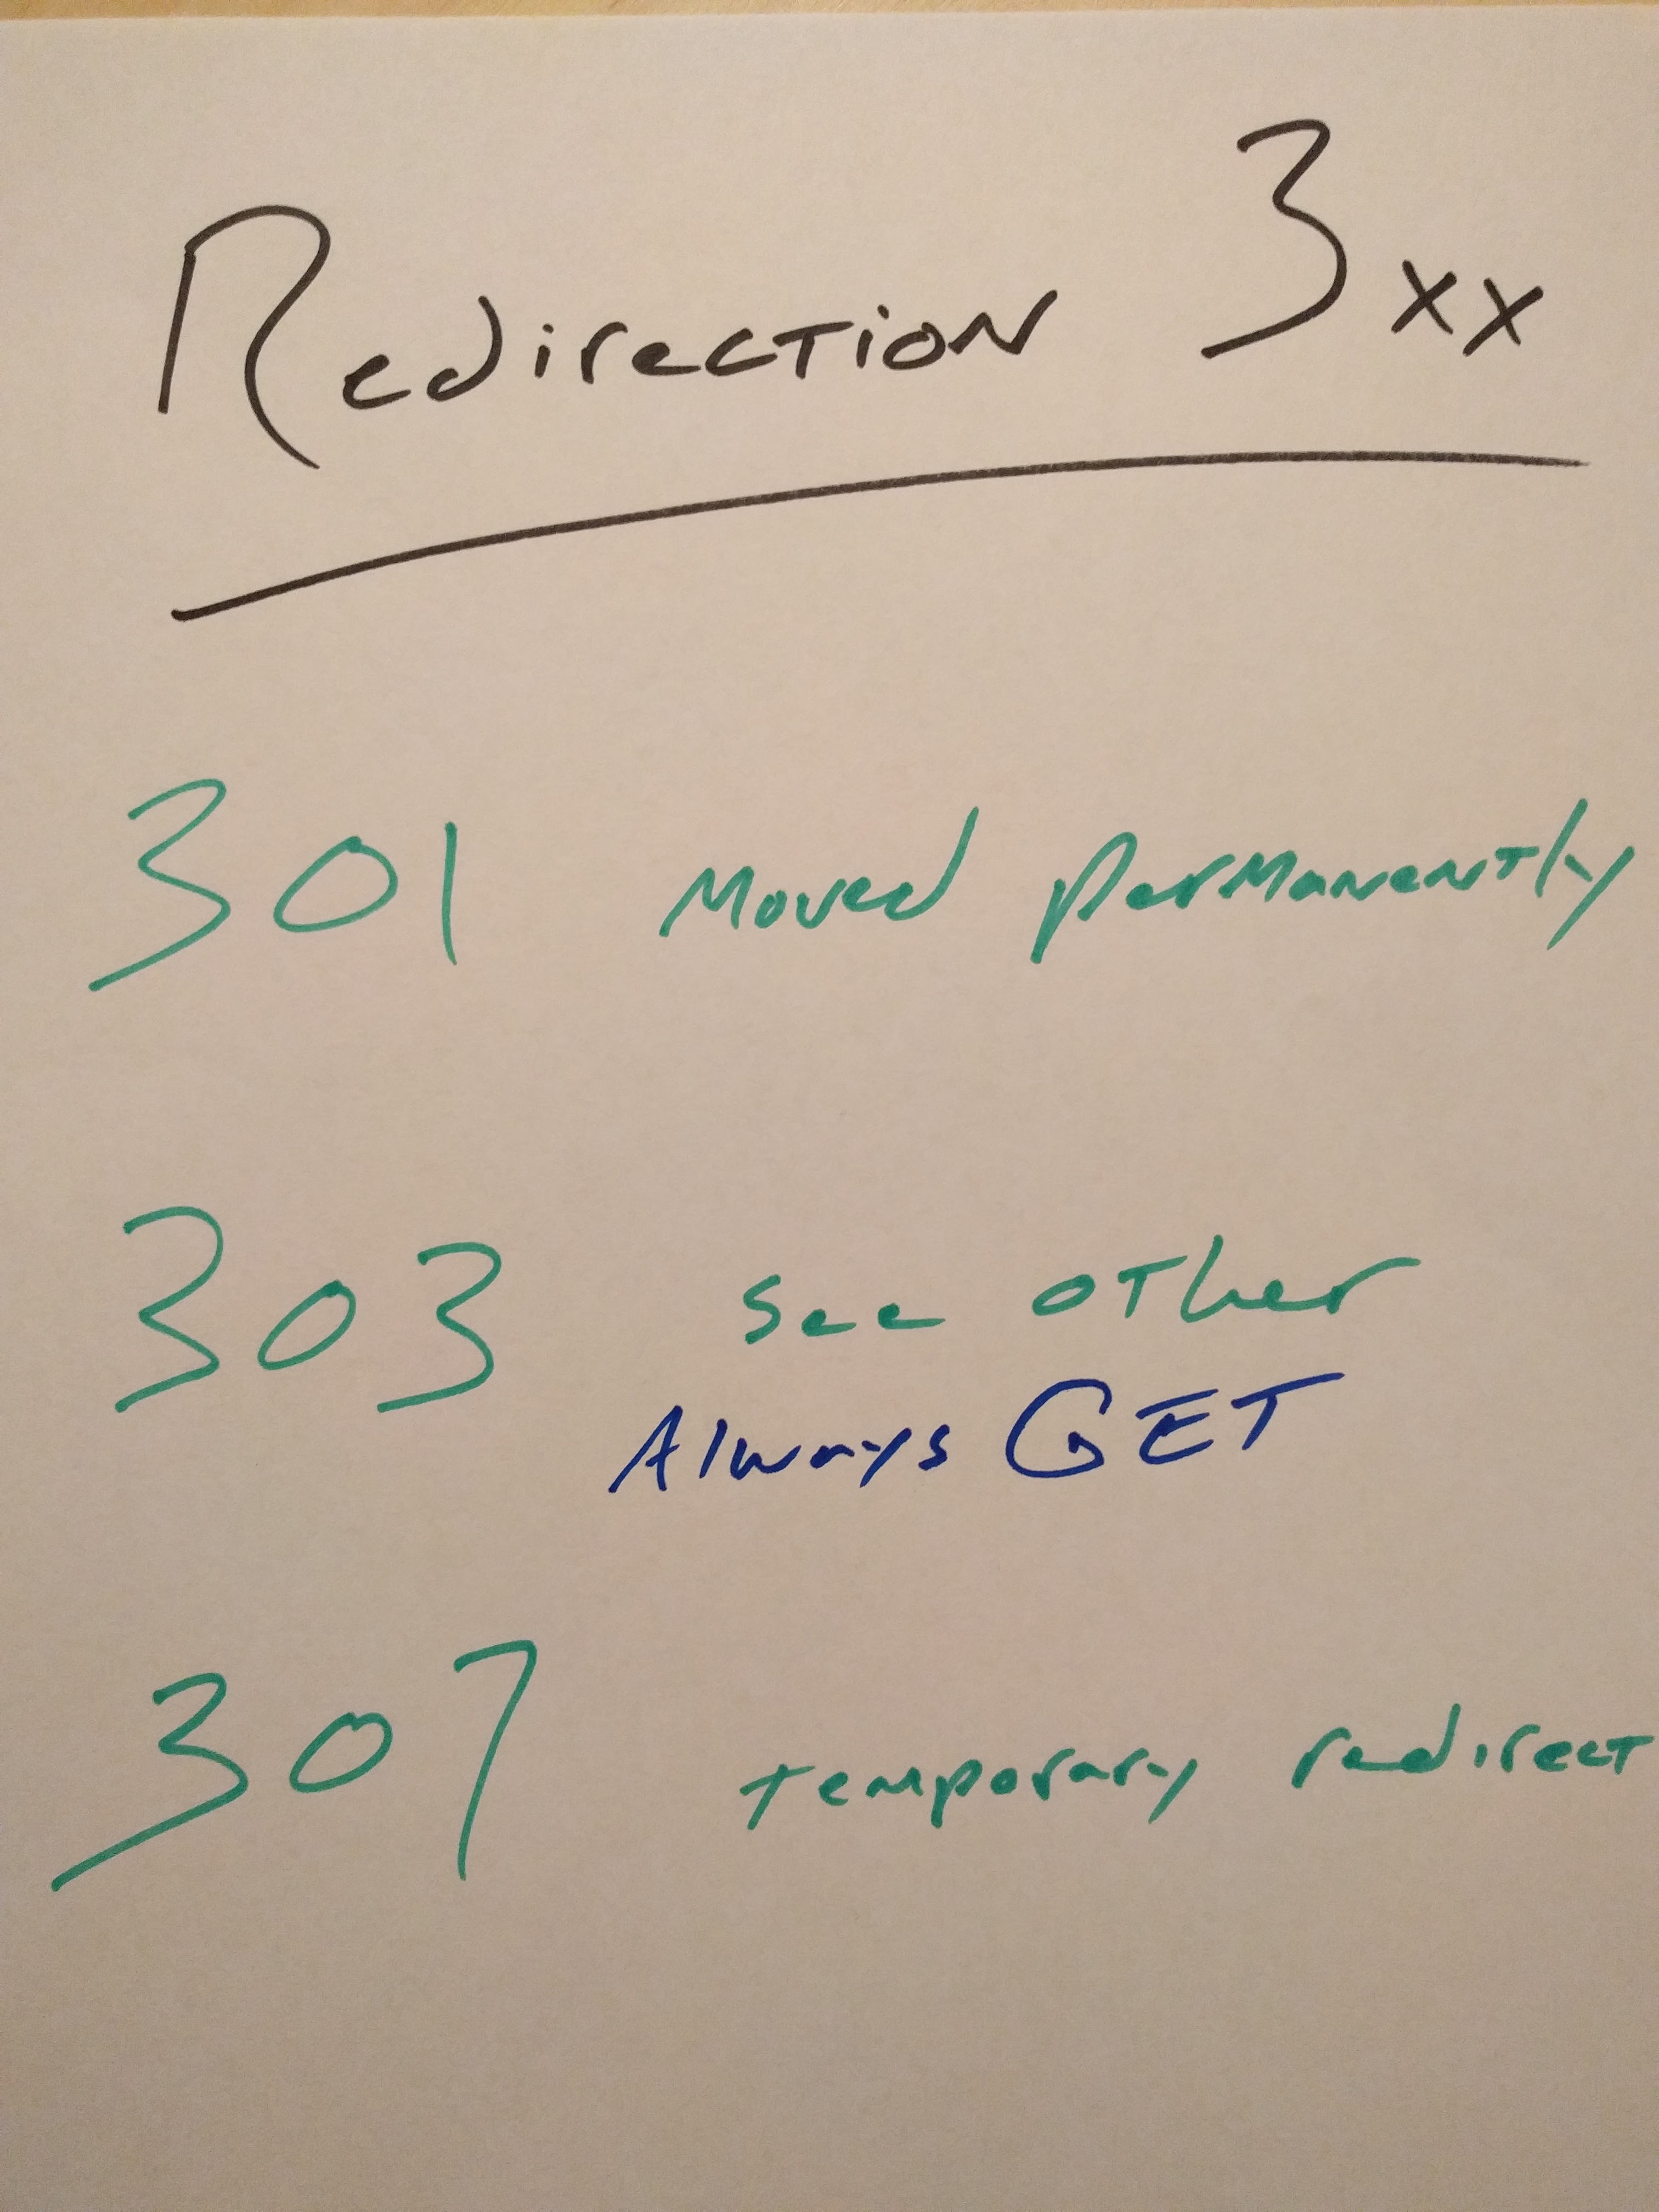 Redirection 3xx
301 Moved permanently
303 see other
Always GET
307 temporary redirect